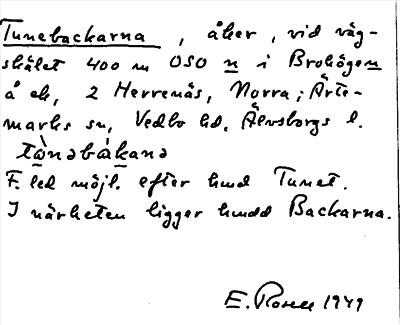 Tunebackarna, åker, vid väg-
skälet 400 m OSO n i Brohögen
å ek, 2 Herrenäs, Norra; Ärte-
marks sn, Vedbo hd, Älvsborgs l.
tànəbákanə
F. led möjl. efter hmd Tunet.
I närheten ligger hmdd Backarna.
E. Rosell 1949